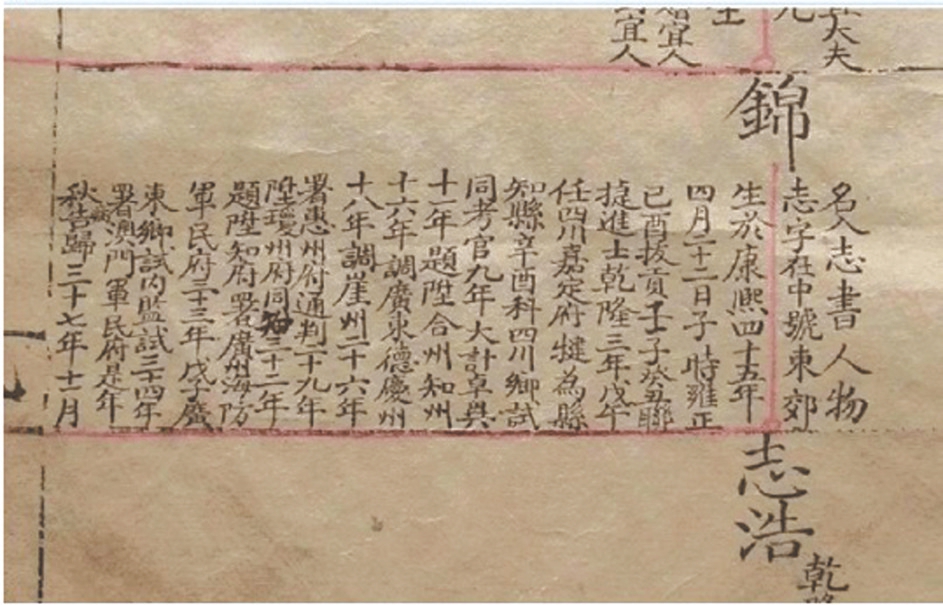 大夫
宜人
宜人
錦
名入志書人物
志字在中號東郊
生於康熙四十五年
四月二十二日子時雍正
己酉拔貢壬子癸丑聯
捷進士乾隆三年戊午
任四川嘉定府犍為縣
知縣辛酉科四川鄉試
同考官九年大計卓異
十一年題陞合州知州
十六年調廣東德慶州
十八年調崖州二十六年
署惠州府通判二十九年
陞瓊州府同知三十二年
題陞知府署廣州海防
軍民府三十三年戊子廣
東鄉試內監試三十四年
署澳門軍民府是年
秋告歸三十七年十二月
志浩
乾